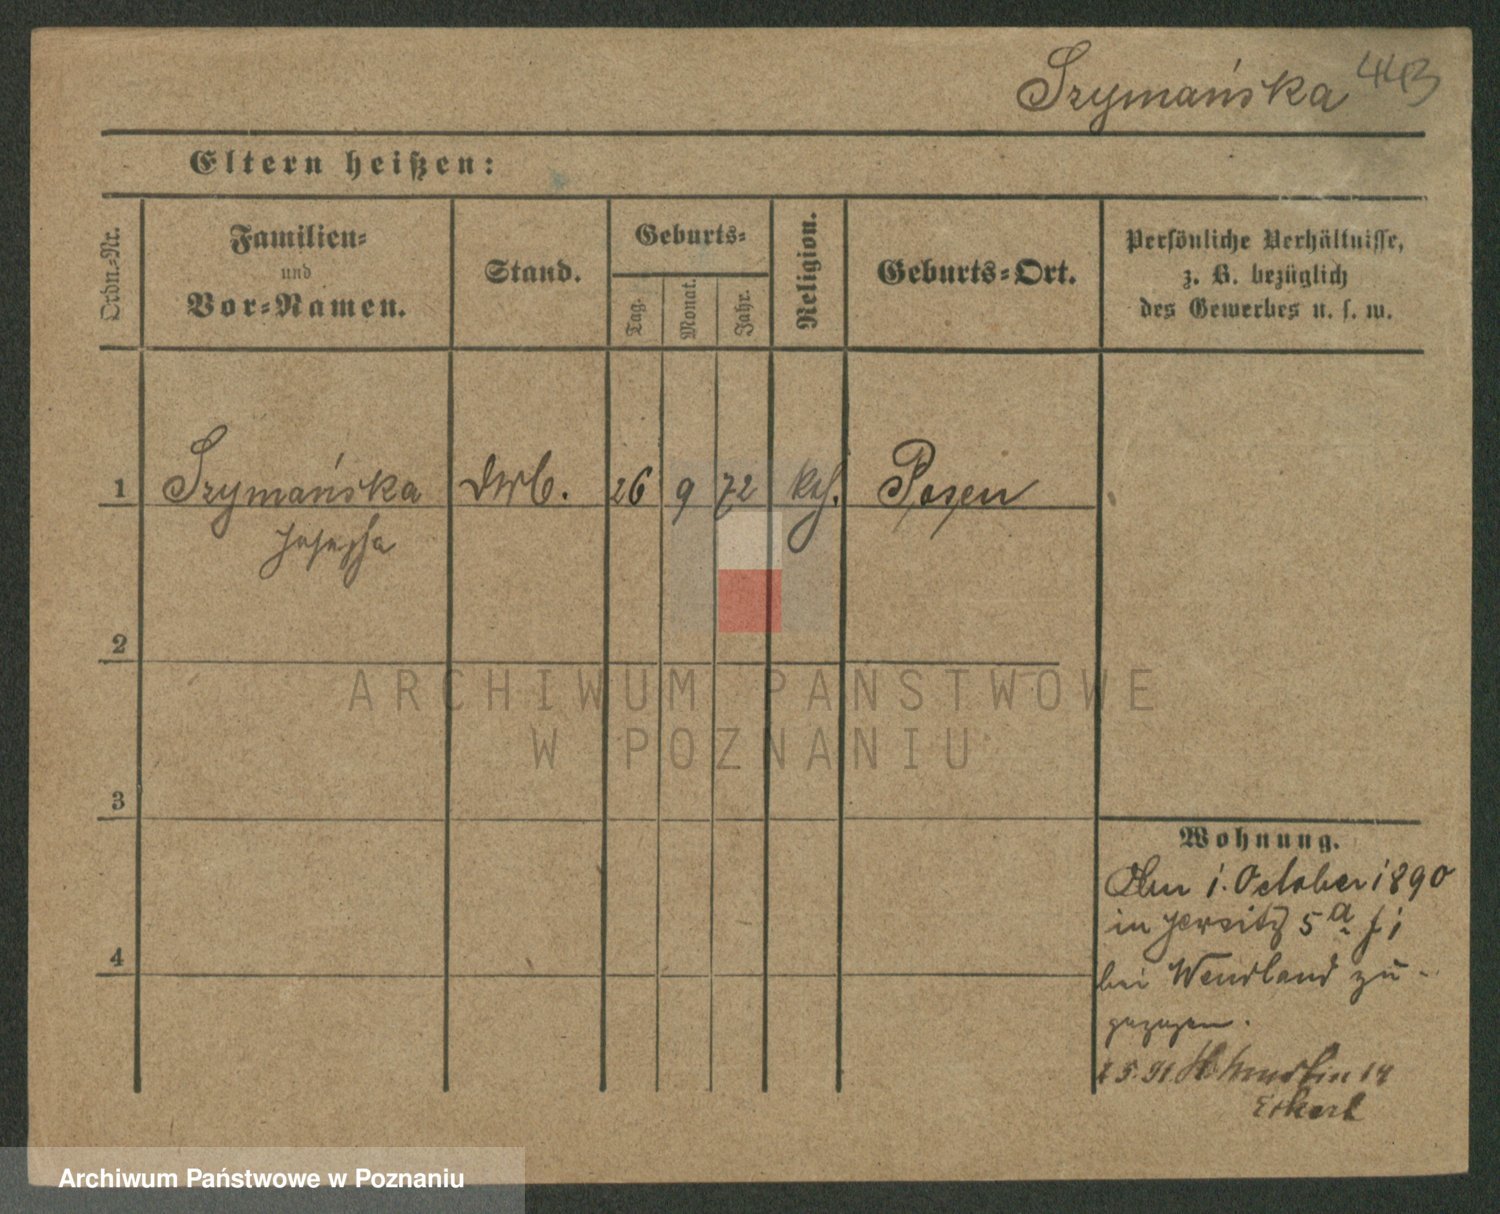 Szymańska 443
Eltern heißen:
Ordn.-Nr.
Familien-
und
Vor-Namen.
Stand.
Geburts-
Tag.
Monat.
Jahr.
Religion.
Geburts-Ort.
Persönliche Verhältnisse,
z. B. bezüglich
des Gewerbes u. s. w.
1 Szymańska 26 9 72 kth. Posen
Josepha
2
3
4
Wohnung.
Am 1. October 1890
in Jersitz 5 a
bei Wendland zu-
gezogen.
5. 91 14
ARCHIWUM PAŃSTWOWE
W POZNANIU
Archiwum Państwowe w Poznaniu